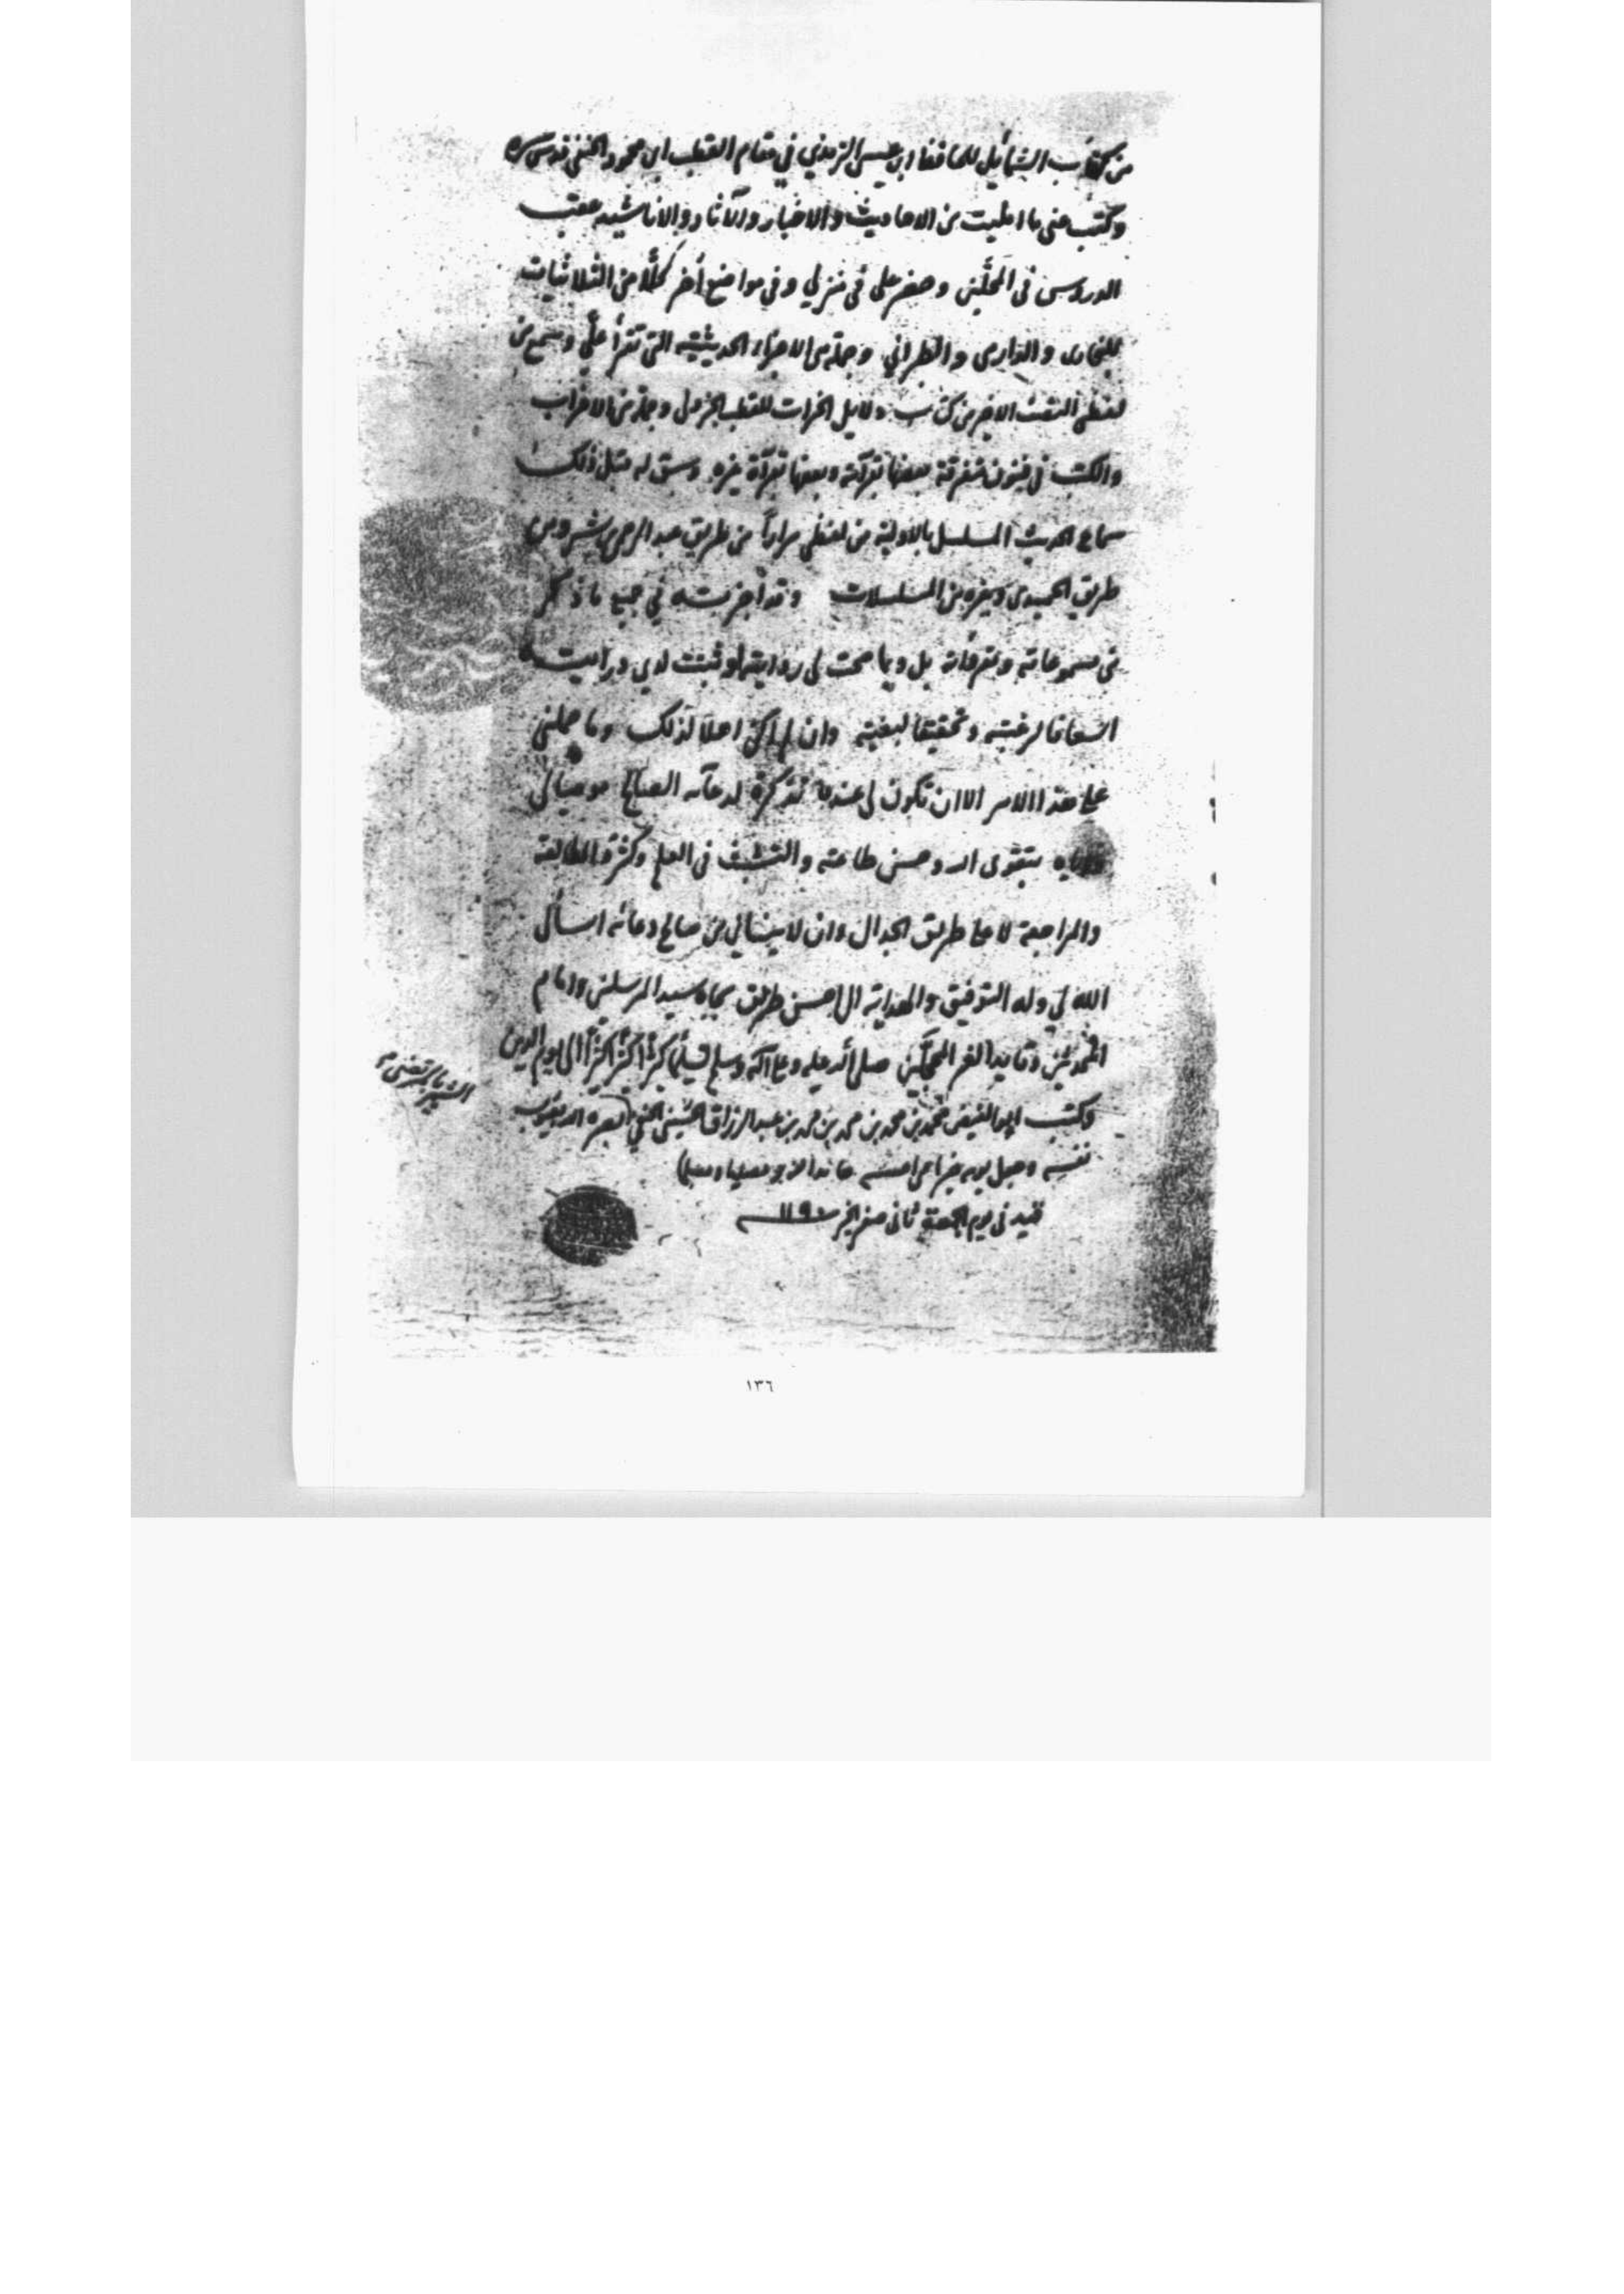 من كتاب الشمائل للحافظ ابى عيسى الترمذي في مقام القطب ابى محمود الحنفي قدس سره
وكتب عني ما امليت من الاحاديث والاخبار والآثار والاناشيد عقب
الدروس في المحلين وحضر علي في منزلي وفي مواضع أخر كلًّا من الثلاثيات
للبخارى والدارمى والطبراني وجملة من الاجزاء الحديثية التى تقرأ عليّ وسمع من
لفظي الثلث الاخير من كتاب دلايل الخيرات للقطب الجزولي وجملة من الاحزاب
والكتب في فنون متفرقة بعضها بقرآءته وبعضها بقرآءة غيره وسبق له قبل ذلك
سماع الحديث المسلسل بالاولية من لفظي مراراً من طريق عبد الرحمن بن بشر ومن
طريق الحميدى وغيره من المسلسلات وقد أجزته في جميع ما ذكر
من مسموعاته ومقروءاته بل وبما صحت لي روايته او ثبتت لدي درايته
اسعافا لرغبته وتحقيقا لبغيته وان لم اكن اهلا لذلك وما حملني
على هذا الامر الا ان تكون لى عنده تذكرة لدعآئه الصالح موصيا لي
واياه بتقوى الله وحسن طاعته والتثبت في العلم وكثرة المطالعة
والمراجعة لا على طريق الجدال وان لا ينساني من صالح دعائه اسأل
الله لي وله التوفيق والهداية الى احسن طريق بجاه سيد المرسلين وامام
المحدثين وقايد الغر المحجلين صلى الله عليه وعلى آله وسلم تسليمًا كثيرًا كثيرًا كثيرًا الى يوم الدين
وكتب ابو الفيض محمد بن محمد بن محمد بن محمد بن عبد الرزاق الحسيني الحنفي بصره الله بعيوب
نفسه وجعل يومه خيرا من امسه حامدا لله ومصليا ومسلما
قيد في يوم الجمعة ثاني صفر الخير ١١٩٠
١٣٦